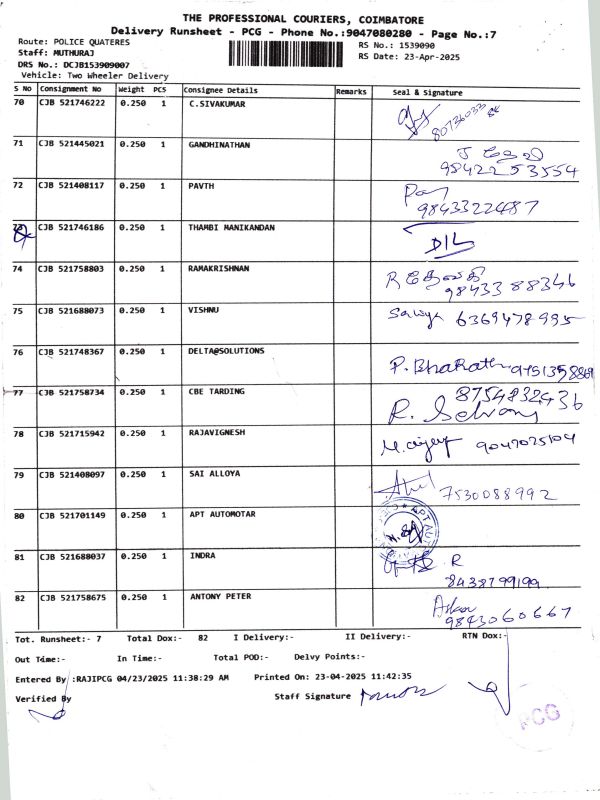 THE PROFESSIONAL COURIERS, COIMBATORE
Delivery Runsheet - PCG - Phone No.:9047080280 - Page No.:7
Route: POLICE QUATERES
RS No.: 1539090
Staff: MUTHURAJ
RS Date: 23-Apr-2025
DRS No.: DCJB153909007
Vehicle: Two Wheeler Delivery
S No Consignment No Weight PCS Consignee Details Remarks Seal & Signature
70 CJB 521746222 0.250 1 C.SIVAKUMAR
71 CJB 521445021 0.250 1 GANDHINATHAN 98422 53554
72 CJB 521408117 0.250 1 PAVTH 9843322487
73 CJB 521746186 0.250 1 THAMBI MANIKANDAN D/L
74 CJB 521758803 0.250 1 RAMAKRISHNAN 98433 88346
75 CJB 521688073 0.250 1 VISHNU 6369478995
76 CJB 521748367 0.250 1 DELTA@SOLUTIONS P. Bharath
77 CJB 521758734 0.250 1 CBE TARDING 8754832436
R. Selvam
78 CJB 521715942 0.250 1 RAJAVIGNESH 9047025104
79 CJB 521408097 0.250 1 SAI ALLOYA 7530088992
80 CJB 521701149 0.250 1 APT AUTOMOTAR
81 CJB 521688037 0.250 1 INDRA R
8438799199
82 CJB 521758675 0.250 1 ANTONY PETER 9843060667
Tot. Runsheet:- 7 Total Dox:- 82 I Delivery:- II Delivery:- RTN Dox:-
Out Time:- In Time:- Total POD:- Delvy Points:-
Entered By :RAJIPCG 04/23/2025 11:38:29 AM Printed On: 23-04-2025 11:42:35
Verified By Staff Signature
PCG